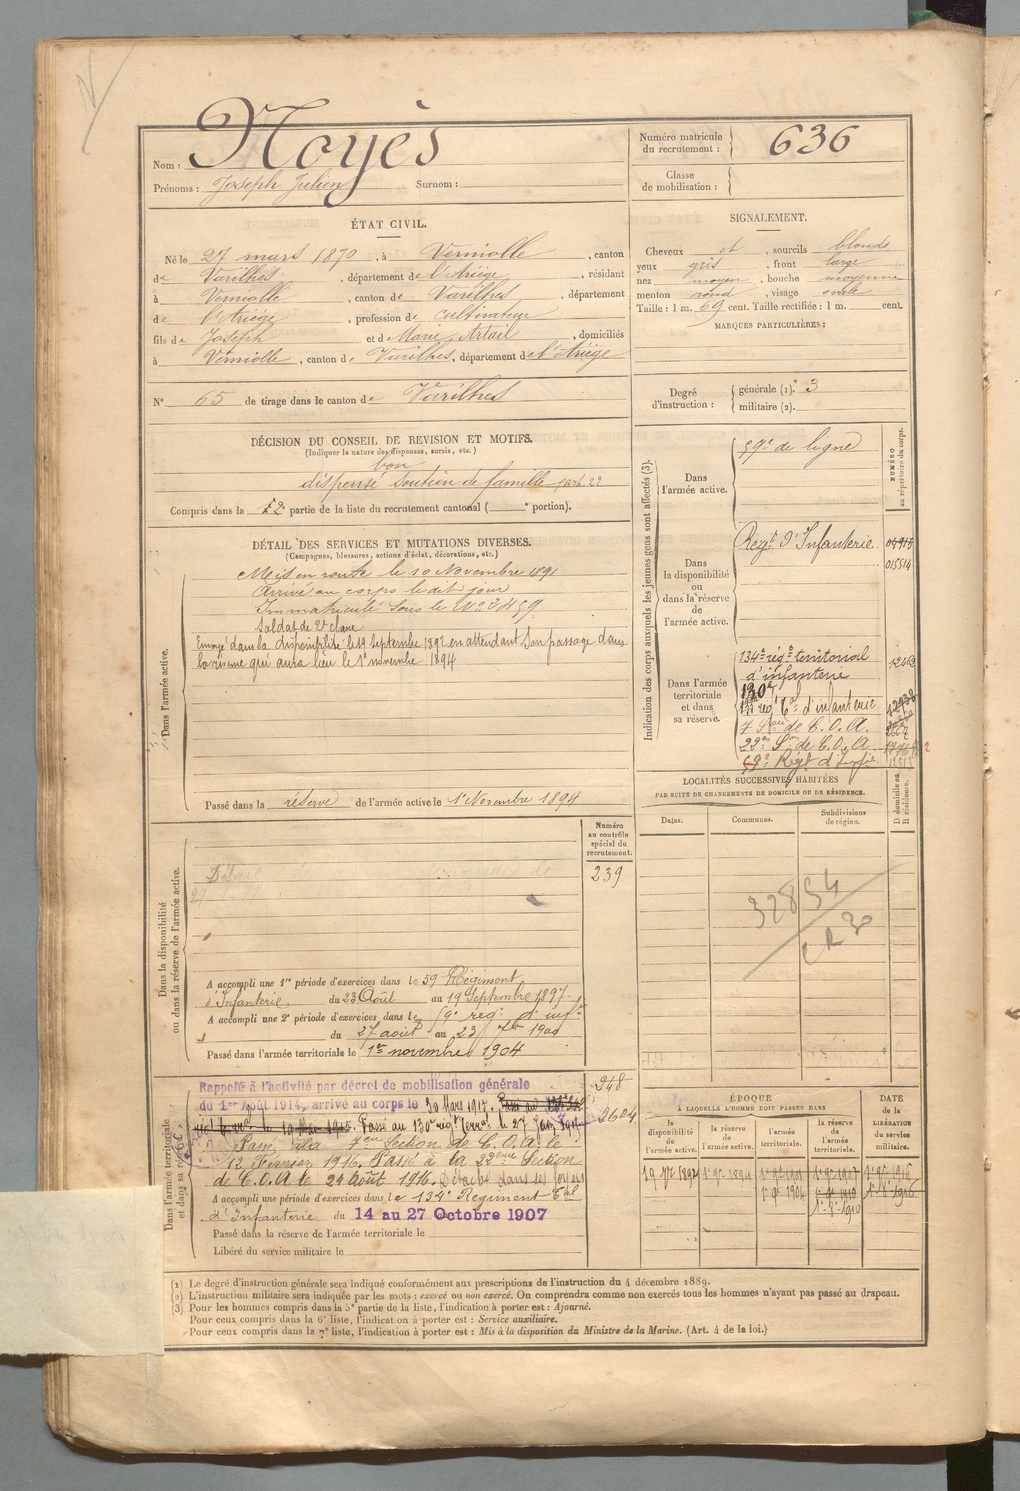 Nom : Noyès
Prénoms : Joseph Julien Surnom :
Numéro matricule du recrutement : 636
Classe de mobilisation :
ÉTAT CIVIL.
Né le 27 mars 1870, à Verniolle, canton
de Varilhes, département de l'Ariège, résidant
à Verniolle, canton de Varilhes, département
de l'Ariège, profession de cultivateur
fils de Joseph et de Marie Artail, domiciliés
à Verniolle, canton de Varilhes, département de l'Ariège
N° 65 de tirage dans le canton de Varilhes
SIGNALEMENT.
Cheveux et, sourcils blonds
yeux gris, front large
nez moyen, bouche moyenne
menton rond, visage ovale
Taille : 1 m. 69 cent. Taille rectifiée : 1 m. cent.
MARQUES PARTICULIÈRES :
Degré d'instruction :
générale (1). 3
militaire (2).
DÉCISION DU CONSEIL DE REVISION ET MOTIFS.
(Indiquer la nature des dispenses, sursis, etc.)
bon
dispensé soutien de famille art. 22
Compris dans la 2e partie de la liste du recrutement cantonal ( e portion).
DÉTAIL DES SERVICES ET MUTATIONS DIVERSES.
(Campagnes, blessures, actions d'éclat, décorations, etc.)
Dans l'armée active.
Mis en route le 10 Novembre 1891
Arrivé au corps le dit jour
Immatriculé sous le N°
Soldat de 2e classe
Envoyé dans la disponibilité le 19 Septembre 1892 en attendant son passage dans
la réserve qui aura lieu le 1er novembre 1894
Passé dans la réserve de l'armée active le 1er Novembre 1894
Indication des corps auxquels les jeunes gens sont affectés (3).
NUMÉRO au répertoire du corps.
Dans l'armée active.
59e de ligne
Dans la disponibilité ou dans la réserve de l'armée active.
Regt d'Infanterie
015514
Dans l'armée territoriale et dans sa réserve.
134e régt territorial
d'infanterie
130e
régt Tal d'infanterie
7 Son de C.O.A.
22e Son de C.O.A.
Régt d'Infie
LOCALITÉS SUCCESSIVES HABITÉES
PAR SUITE DE CHANGEMENTS DE DOMICILE OU DE RÉSIDENCE.
Dates. Communes. Subdivisions de région. D domicile ou R résidence.
32854
CR 30
Dans la disponibilité ou dans la réserve de l'armée active.
Numéro au contrôle spécial du recrutement.
239
A accompli une 1re période d'exercices dans le 59 Régiment
d'Infanterie, du 23 Août au 19 Septembre 1897
A accompli une 2e période d'exercices dans le 59e rég. d'infie
du 27 août au 23 7bre 1900
Passé dans l'armée territoriale le 1er novembre 1904
Dans l'armée territoriale et dans sa réserve.
Rappelé à l'activité par décret de mobilisation générale
du 1er Août 1914, arrivé au corps le 30 Mars 1917.
Passé au 130e régt Terral le 27 Juin
Passé à la 7eme Section de C.O.A. le
12 Février 1916. Passé à la 22ème Section
de C.O.A le 24 Août 1916. Détaché dans ses foyers
A accompli une période d'exercices dans le 134e Régiment Tal
d'Infanterie du 14 au 27 Octobre 1907
Passé dans la réserve de l'armée territoriale le
Libéré du service militaire le
248
2604
ÉPOQUE
À LAQUELLE L'HOMME DOIT PASSER DANS
la disponibilité de l'armée active.
la réserve de l'armée active.
l'armée territoriale.
la réserve de l'armée territoriale.
DATE de la LIBÉRATION du service militaire.
19 7bre 1892 1er 9bre 1894 1er 9bre 1904 1er 9bre 1910 1er 9bre 1916
(1) Le degré d'instruction générale sera indiqué conformément aux prescriptions de l'instruction du 4 décembre 1889.
(2) L'instruction militaire sera indiquée par les mots : exercé ou non exercé. On comprendra comme non exercés tous les hommes n'ayant pas passé au drapeau.
(3) Pour les hommes compris dans la 5e partie de la liste, l'indication à porter est : Ajourné.
Pour ceux compris dans la 6e liste, l'indication à porter est : Service auxiliaire.
Pour ceux compris dans la 7e liste, l'indication à porter est : Mis à la disposition du Ministre de la Marine. (Art. 4 de la loi.)